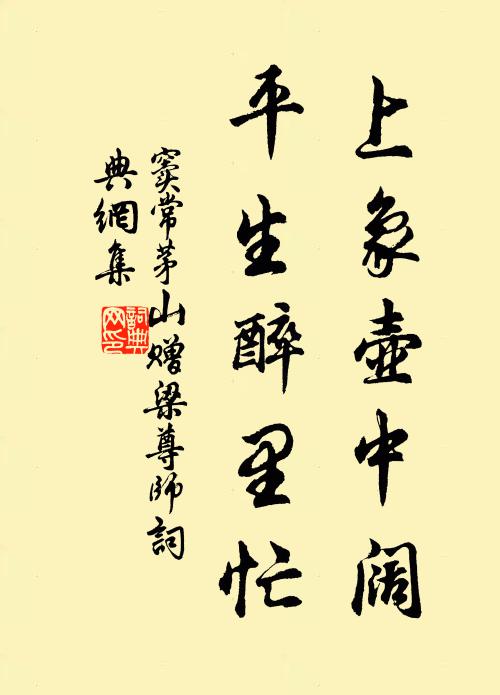 上象壺中阔
平生醉里忙
窦常茅山赠梁尊師詞
典網集
詞典
网印